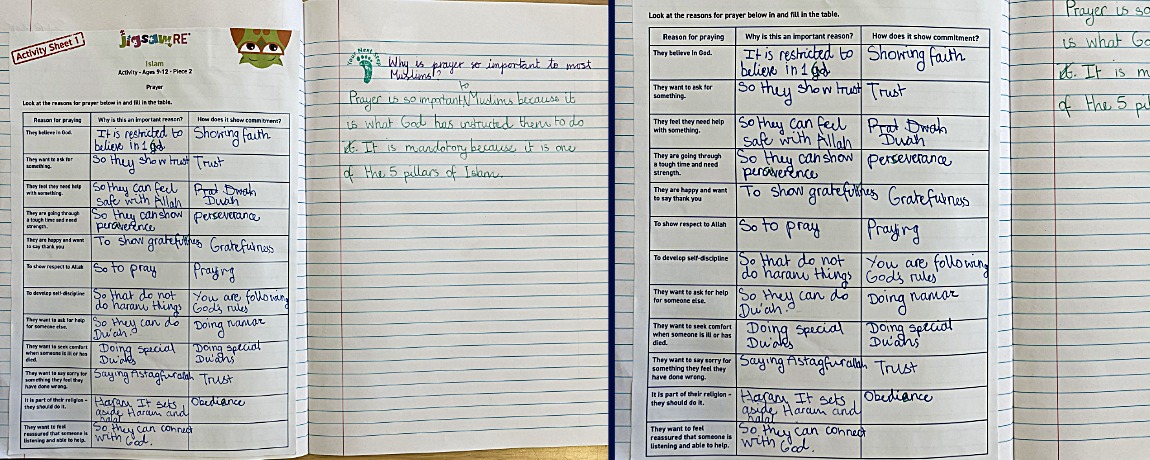 Activity Sheet 1
jigsaw RE
Islam
Activity - Ages 9-12 - Piece 2
Prayer
Look at the reasons for prayer below in and fill in the table.
Reason for praying
Why is this an important reason?
How does it show commitment?
They believe in God.
It is restricted to
believe in 1 god
Showing faith
They want to ask for
something.
So they show trust
Trust
They feel they need help
with something.
So they can feel
safe with Allah
Duah
They are going through
a tough time and need
strength.
So they can show
perserverence
perseverance
They are happy and want
to say thank you
To show gratefullnes
Gratefulness
To show respect to Allah
So to pray
Praying
To develop self-discipline
So that do not
do haram things
You are following
God's rules
They want to ask for help
for someone else.
So they can do
Du'ah.
Doing namaz
They want to seek comfort
when someone is ill or has
died.
Doing special
Du'ahs
Doing special
Du'ahs
They want to say sorry for
something they feel they
have done wrong.
Saying Astagfurallah
Trust
It is part of their religion -
they should do it.
Haram It sets
aside Haram and
halal
Obediance
They want to feel
reassured that someone is
listening and able to help.
So they can connect
with God.
Your Next Step
Why is prayer so important to most
Muslims?
Prayer is so important to Muslims because it
is what God has intructed them to do
it. It is mandatory because it is one
of the 5 pillars of Islam.
Look at the reasons for prayer below in and fill in the table.
Reason for praying
Why is this an important reason?
How does it show commitment?
They believe in God.
It is restricted to
believe in 1 god
Showing faith
They want to ask for
something.
So they show trust
Trust
They feel they need help
with something.
So they can feel
safe with Allah
Duah
They are going through
a tough time and need
strength.
So they can show
perserverence
perseverance
They are happy and want
to say thank you
To show gratefullnes
Gratefulness
To show respect to Allah
So to pray
Praying
To develop self-discipline
So that do not
do haram things
You are following
God's rules
They want to ask for help
for someone else.
So they can do
Du'ah.
Doing namaz
They want to seek comfort
when someone is ill or has
died.
Doing special
Du'ahs
Doing special
Du'ahs
They want to say sorry for
something they feel they
have done wrong.
Saying Astagfurallah
Trust
It is part of their religion -
they should do it.
Haram It sets
aside Haram and
halal
Obediance
They want to feel
reassured that someone is
listening and able to help.
So they can connect
with God.
Prayer is so
is what Go
it. It is m
of the 5 pil